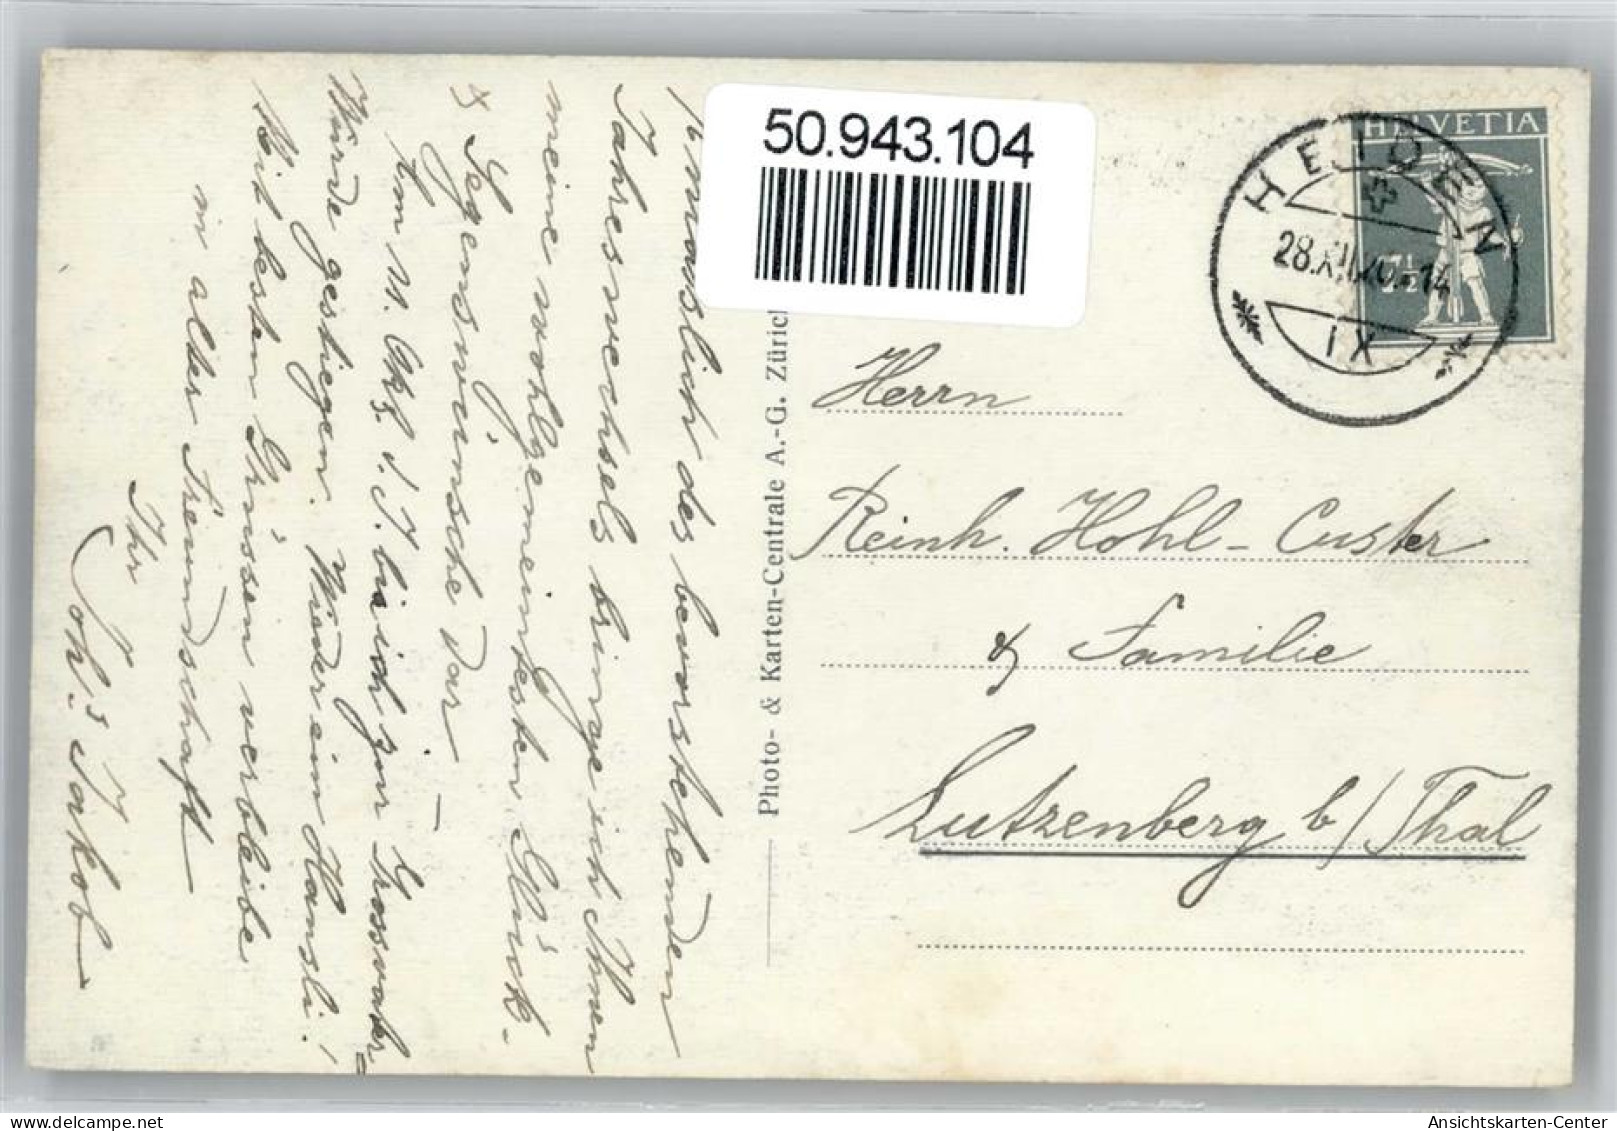 50.943.104
HELVETIA
HEIDEN
28.XII.20.-14
7½
IX
Herrn
Reinh. Hohl-Custer
& Familie
Lutzenberg b/Thal
Photo- & Karten-Centrale A.-G. Zürich
Anlässlich des bevorstehenden
Jahreswechsels bringe ich Ihnen
meine wohlgemeintesten Glück-
& Segenswünsche dar. —
Am Okt. d. J. bin ich zur Grossvater-
Würde gestiegen. Wieder ein Hansli!
Mit besten Grüssen verbleibe
in alter Freundschaft
Ihr
Joh. Jakob
Ansichtskarten-Center